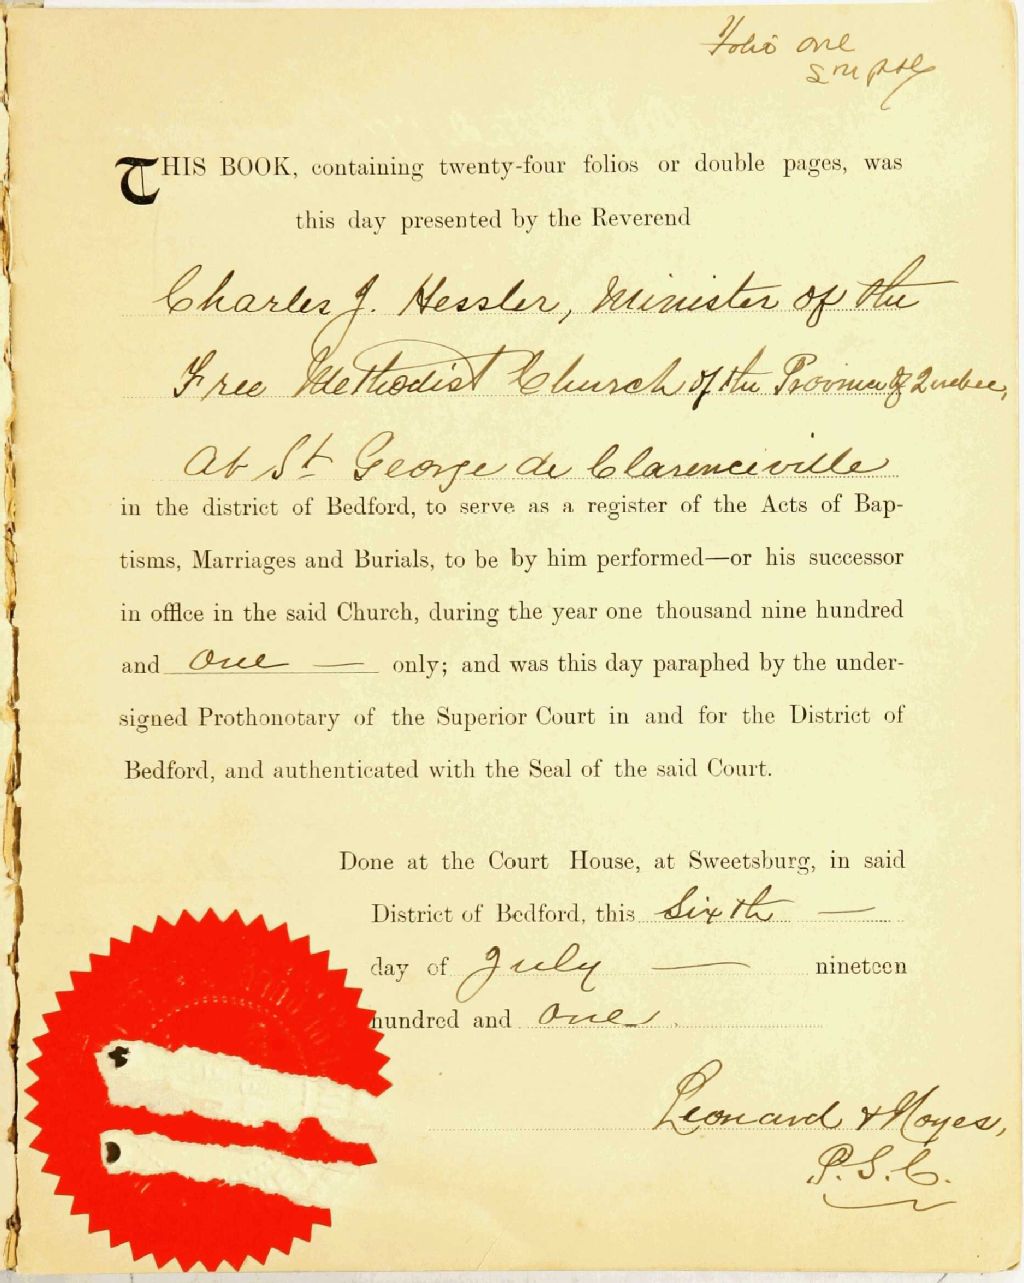 Folio one
THIS BOOK, containing twenty-four folios or double pages, was
this day presented by the Reverend
Charles J. Hessler, Minister of the
Free Methodist Church of the Province of Quebec,
At St George de Clarenceville
in the district of Bedford, to serve as a register of the Acts of Bap-
tisms, Marriages and Burials, to be by him performed—or his successor
in office in the said Church, during the year one thousand nine hundred
and One — only; and was this day paraphed by the under-
signed Prothonotary of the Superior Court in and for the District of
Bedford, and authenticated with the Seal of the said Court.
Done at the Court House, at Sweetsburg, in said
District of Bedford, this Sixth —
day of July — nineteen
hundred and One.
Leonard & Noyes,
P.S.C.